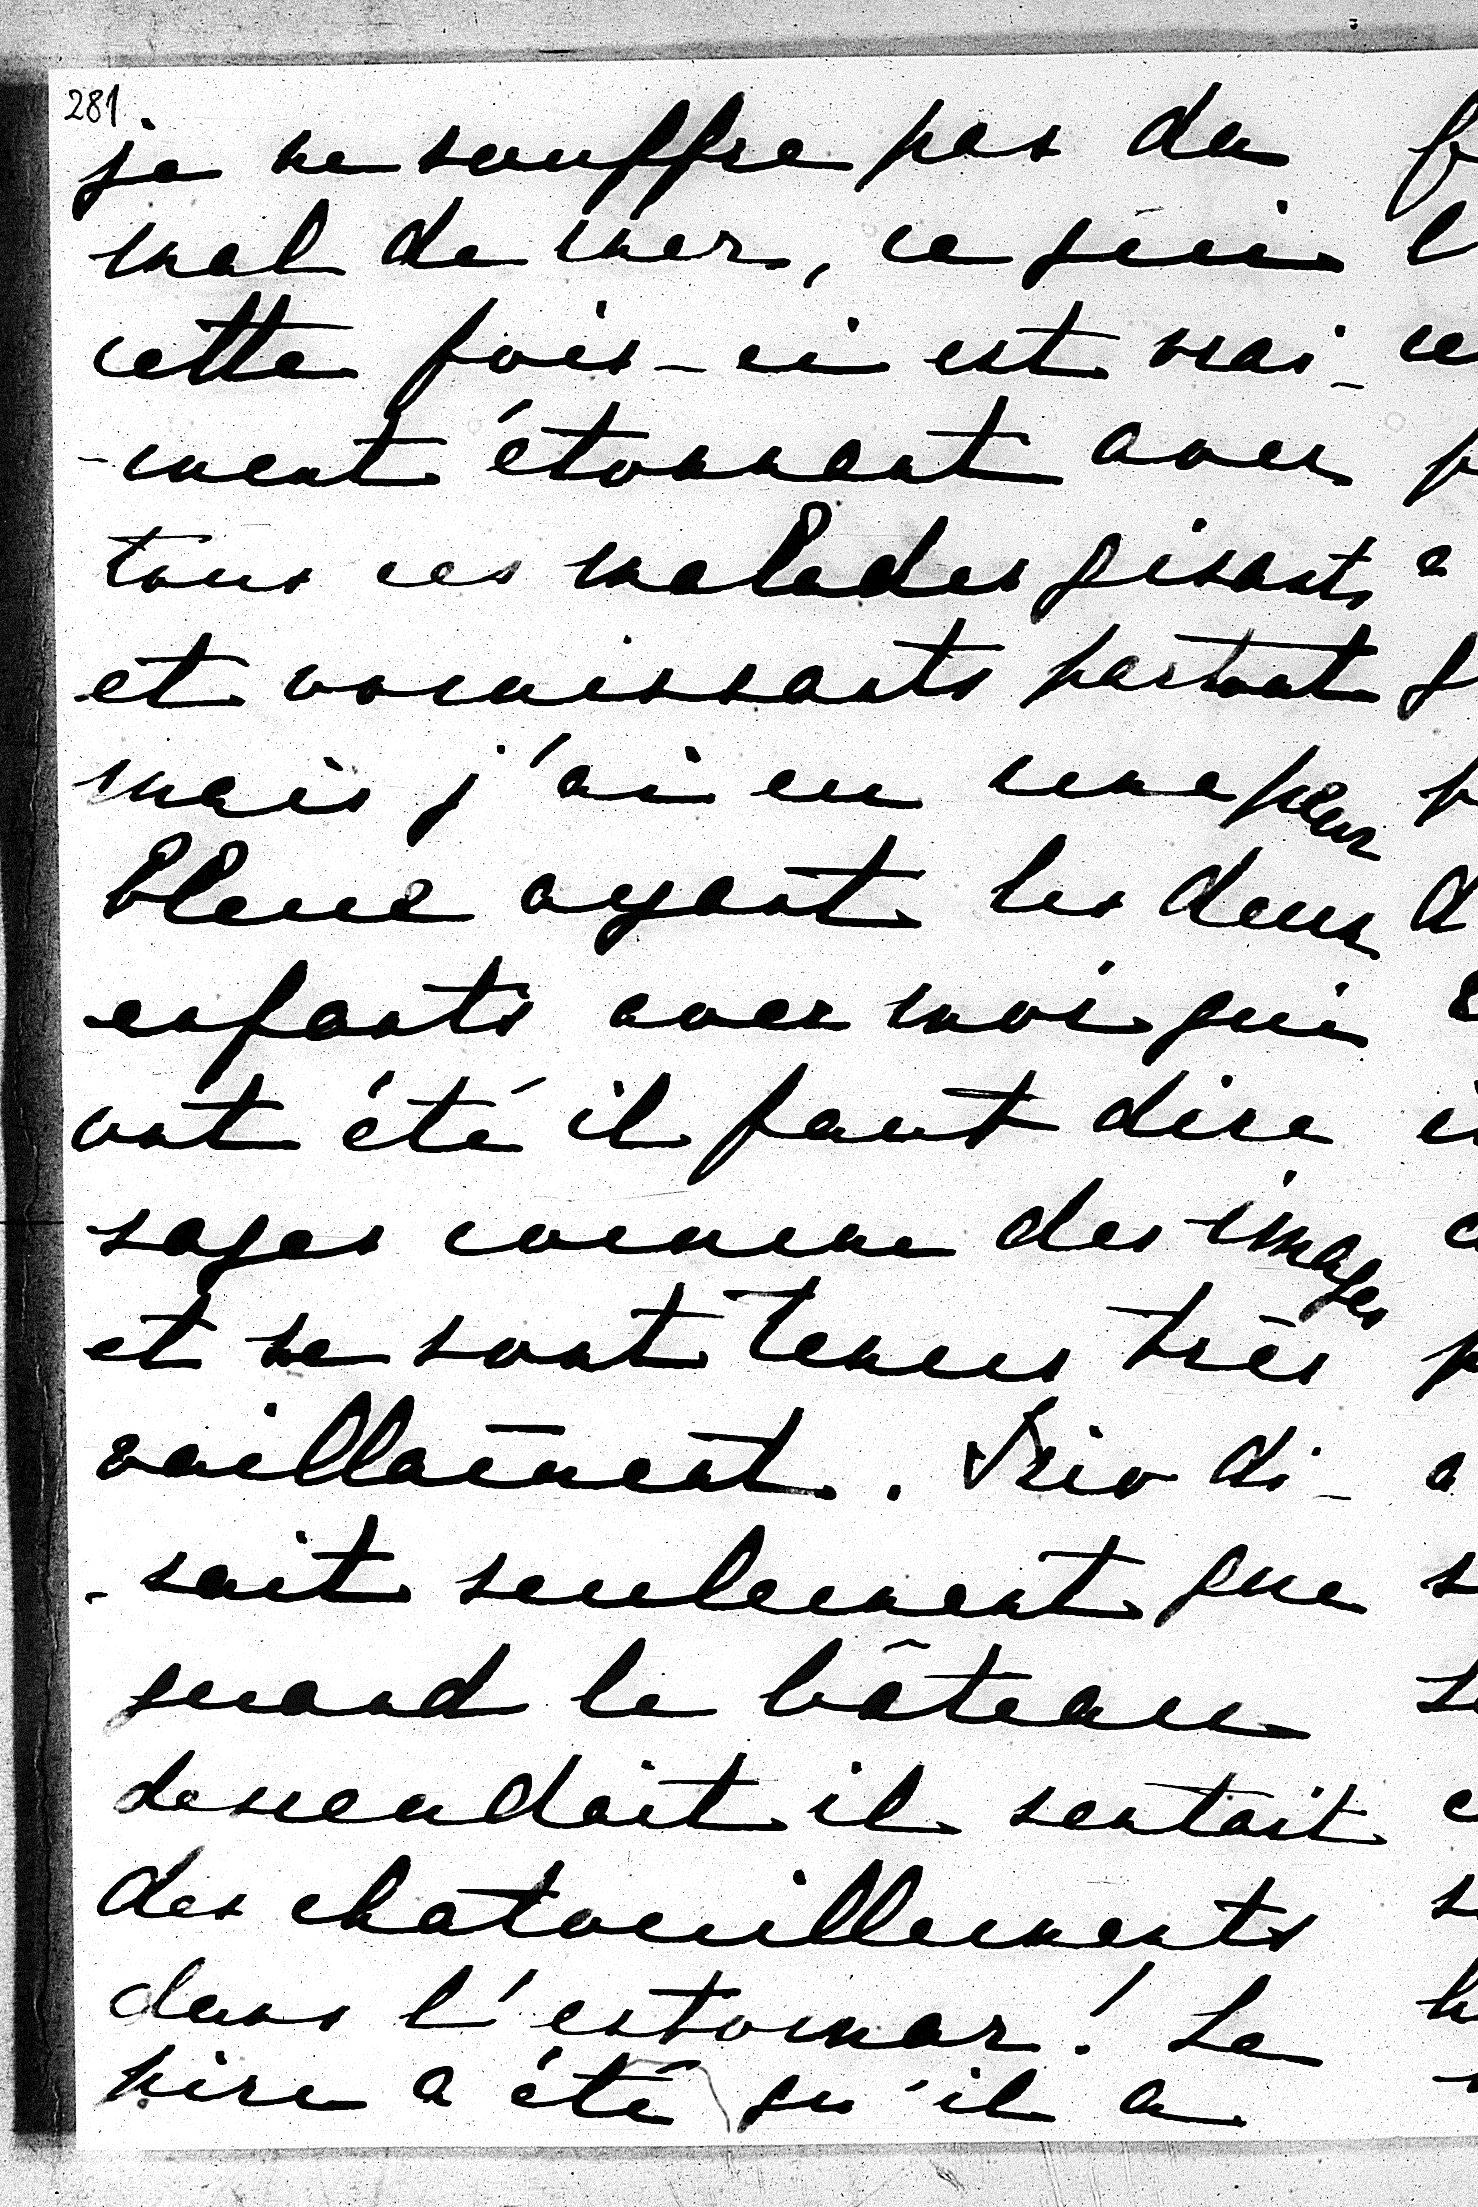 281
je ne souffre pas du
mal de mer, ce qui
cette fois-ci est vrai-
-ment étonnant avec
tous ces malades gisants
et vomissants partout
mais j'ai eu une peur
bleue ayant les deux
enfants avec moi qui
ont été il faut dire
sages comme des images
et se sont tenus très
vaillament. Trio di-
-sait seulement que
quand le bâteau
descendait il sentait
des chatouillements
dans l'estomac! Le
pire a été qu'il a